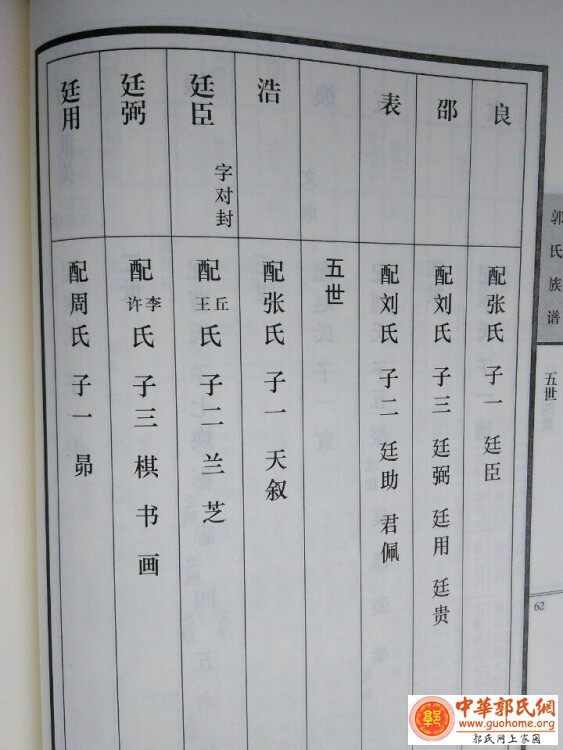 郭氏族谱
五世
62
良
配张氏 子一 廷臣
邵
配刘氏 子三 廷弼 廷用 廷贵
表
配刘氏 子二 廷助 君佩
五世
浩
配张氏 子一 天叙
廷臣 字对封
配丘王氏 子二 兰 芝
廷弼
配李许氏 子三 棋 书 画
廷用
配周氏 子一 昴
中華郭氏網
www.guohome.org
郭氏网上家园